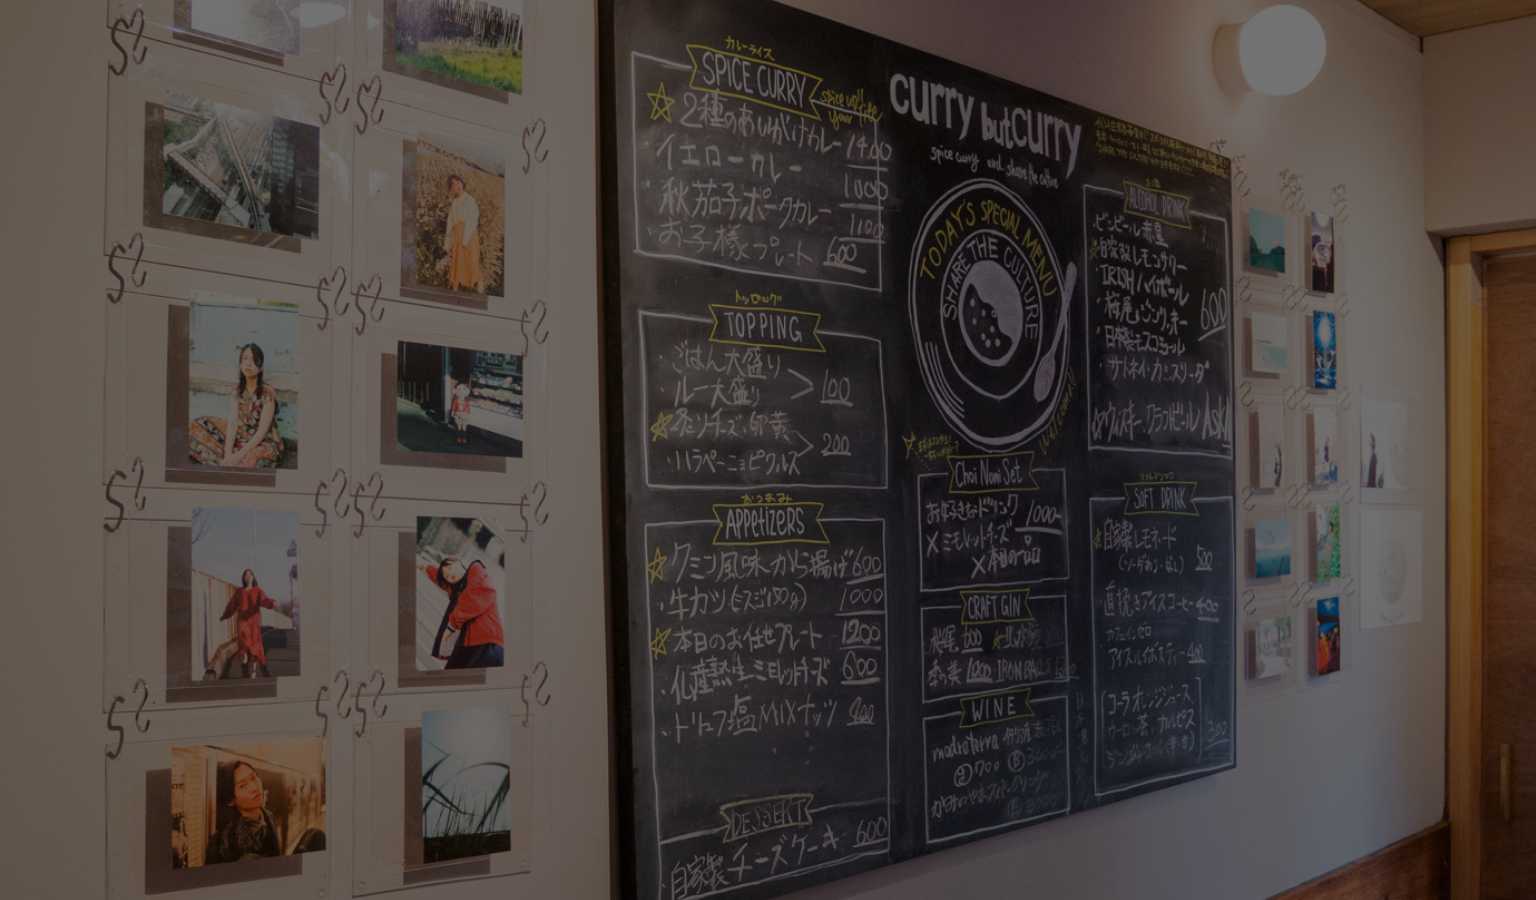 カレーライス
SPICE CURRY
spice up your life
☆2種のあいがけカレー 1400
・イエローカレー 1000
・秋茄子ポークカレー 1100
・お子様プレート 600
トッピング
TOPPING
・ごはん大盛り
・ルー大盛り 100
☆炙りチーズ・卵黄
・ハラペーニョピクルス 200
おつまみ
APPetizERS
☆クミン風味から揚げ 600
・牛カツ 1000
☆本日のお任せプレート 1200
・化産熟生ミモレットチーズ 600
・トリュフ塩MIXナッツ 400
DESSERT
・自家製チーズケーキ 600
curry but curry
spice curry and share the culture
TODAY'S SPECIAL MENU
SHARE THE CULTURE
Welcome!!
Choi Nomi Set
お好きなドリンク 1000
×ミモレットチーズ
×本日の一品
CRAFT GIN
桜尾 600
季の美 1000 IRON BALL
WINE
madreterra
700
ALCOHOL DRINK
・ビンビール赤星
☆自家製レモンサワー
・IRISHハイボール
・桜尾ジンソーダー
・日本製モスコミュール
600
☆ウィスキー・クラフトビール Ask!
ソフトドリンク
SOFT DRINK
☆自家製レモネード
(ソーダあり・なし) 500
・直挽きアイスコーヒー 400
カフェインゼロ
・アイスルイボスティー 400
コーラ オレンジジュース
ウーロン茶 カルピス
300